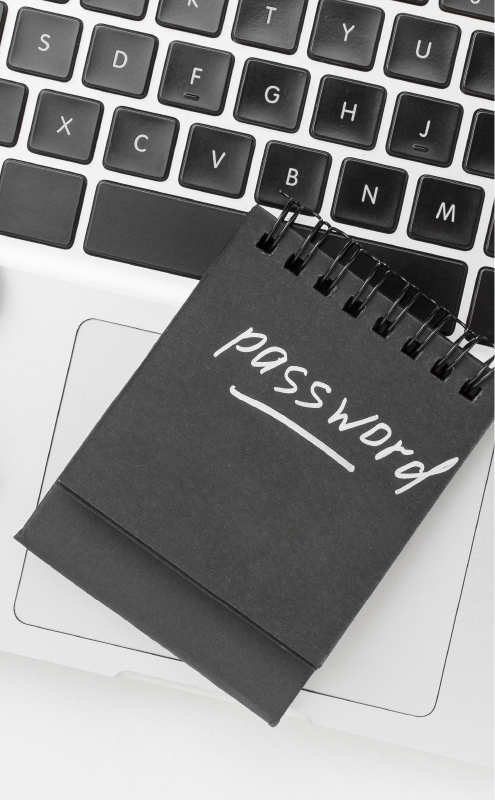 T Y U
S D F G H J
X C V B N M
password